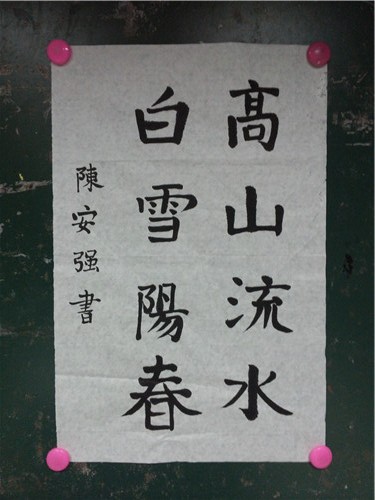 髙山流水
白雪陽春
陳安强書